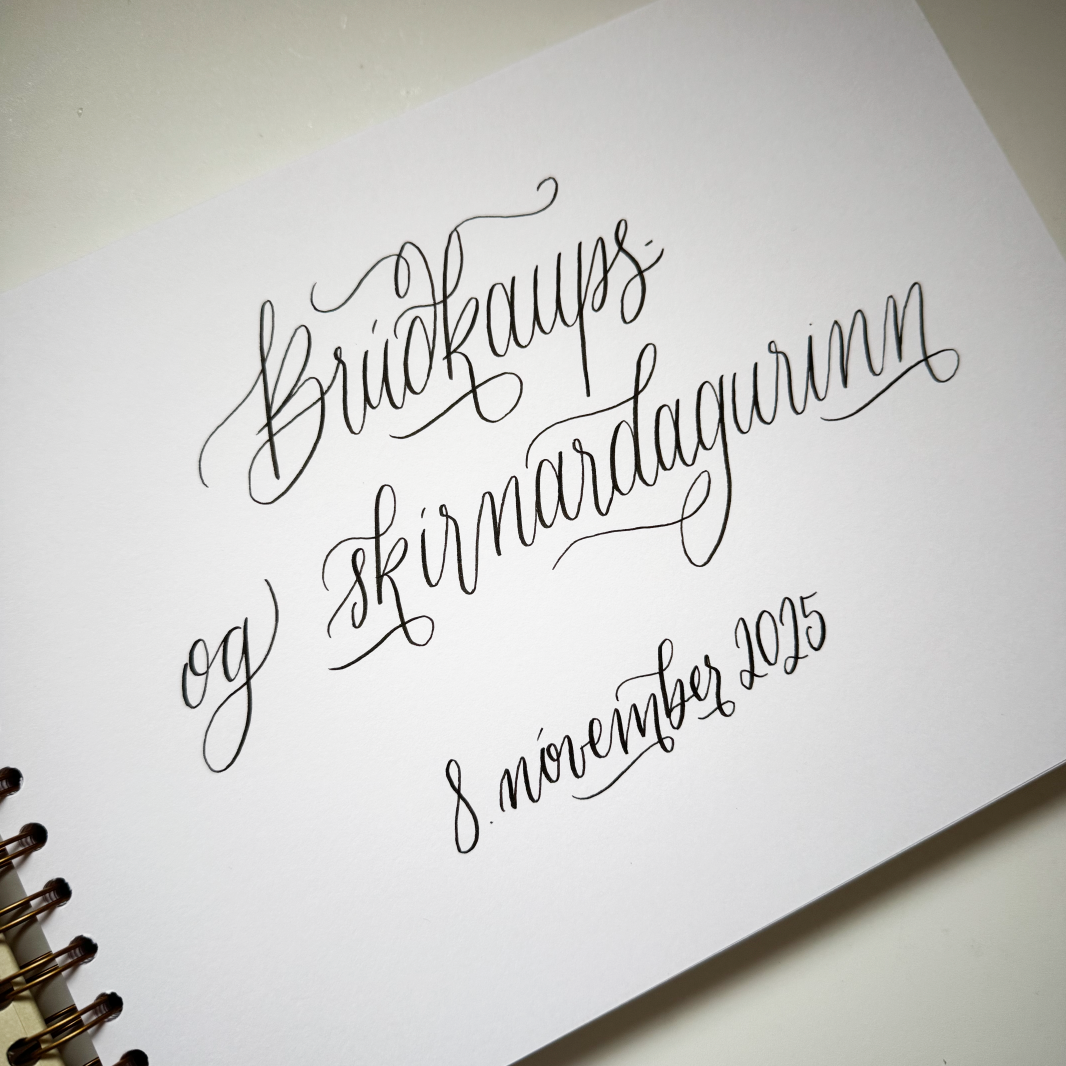 Brúðkaups-
og skírnardagurinn
8. nóvember 2025